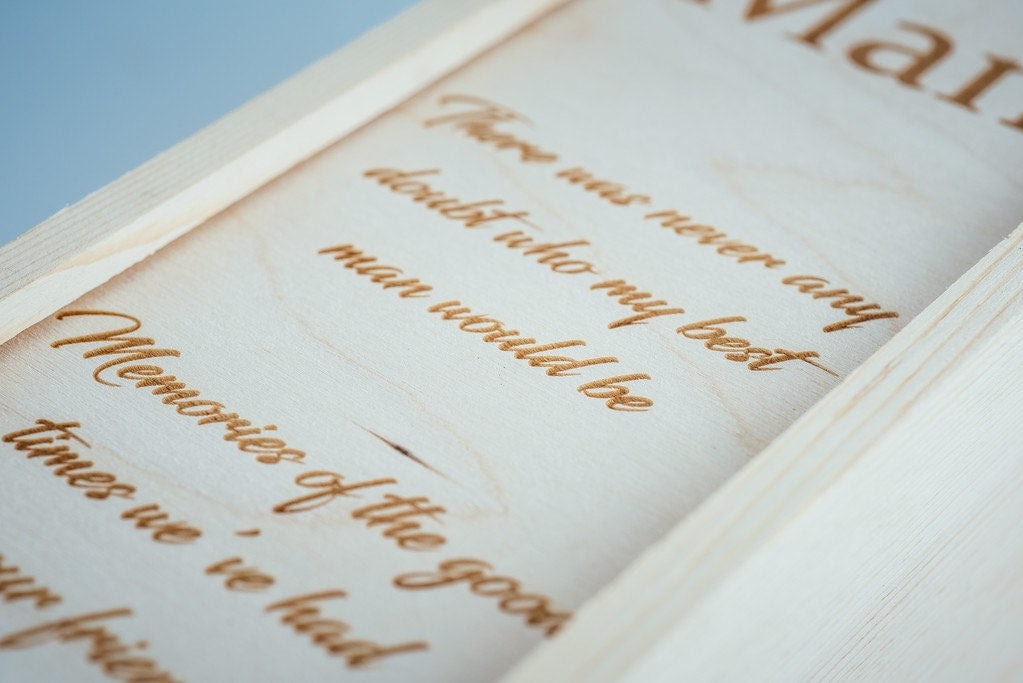 Man
There was never any
doubt who my best
man would be
Memories of the good
times we've we had